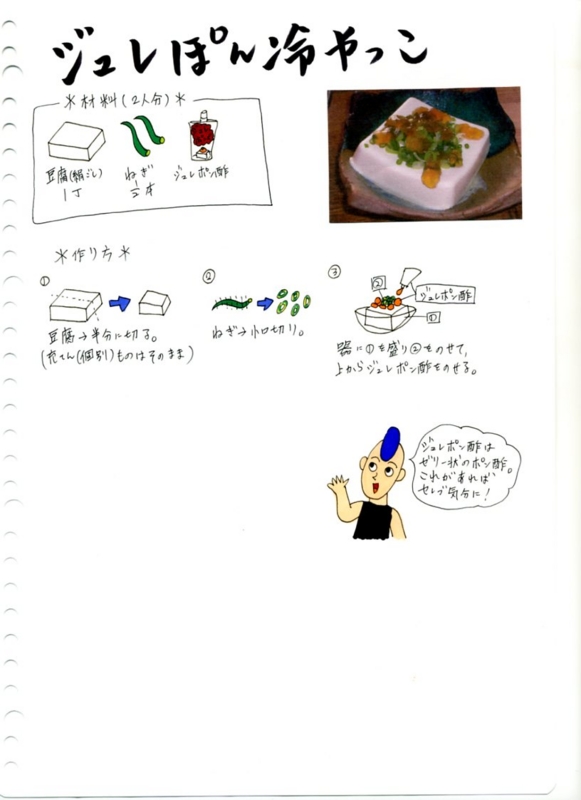 ジュレぽん冷やっこ
*材料(2人分)*
豆腐(絹ごし)
1丁
ねぎ
1/2本
ジュレポン酢
*作り方*
①
豆腐→半分に切る。
(充てん(個別)ものはそのまま)
②
ねぎ→小口切り。
③
②
ジュレポン酢
①
器に①を盛り②をのせて、
上からジュレポン酢をのせる。
ジュレポン酢は
ゼリー状のポン酢。
これがあれば
セレブ気分に!